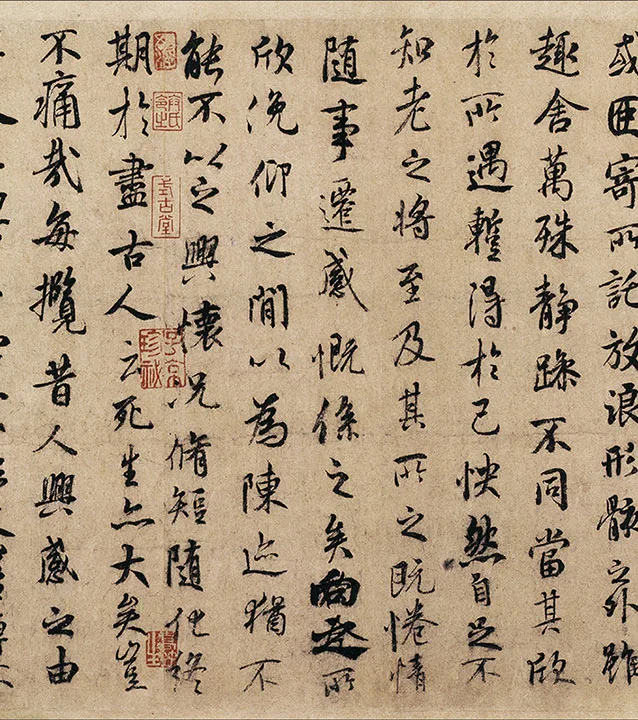 或因寄所託放浪形骸之外雖
趣舍萬殊靜躁不同當其欣
於所遇暫得於己怏然自足不
知老之將至及其所之既惓情
隨事遷感慨係之矣向之所
欣俛仰之閒以為陳迹猶不
能不以之興懷況脩短隨化終
期於盡古人云死生亦大矣豈
不痛哉每攬昔人興感之由
式古堂
子京珍祕